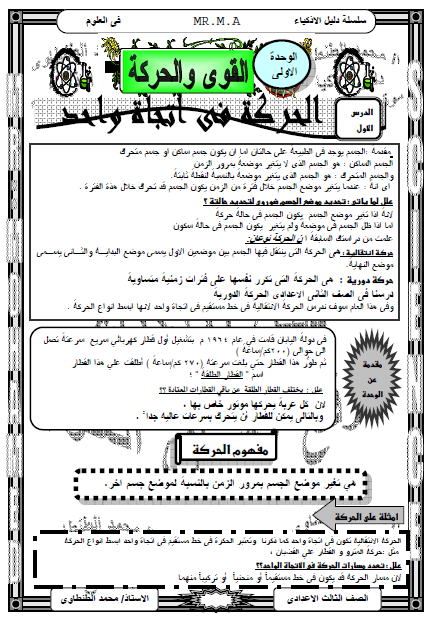 سلسلة دليل الاذكياء
MR.M.A
فى العلوم
الوحدة
الاولى
القوى والحركة
الدرس
الاول
الحركة فى اتجاة واحد
مقدمة :الجسم يوجد فى الطبيعة على حالتان اما ان يكون جسم ساكن او جسم متحرك
الجسم الساكن : هو الجسم الذى لا يتغير موضعة بمرور الزمن
والجسم المتحرك : هو الجسم الذى يتغير موضعة بالنسبة لنقطة ثابتة.
اى انة : عندما يتغير موضع الجسم خلال فترة من الزمن يكون الجسم قد تحرك خلال هذة الفترة .
علل لما ياتى : تحديد موضع الجسم ضرورى لتحديد حالتة ؟
لانة اذا تغير موضع الجسم يكون الجسم فى حالة حركة
اما اذا ظل الجسم فى موضعة ولم يتغير يكون الجسم فى حالة سكون
علمت من دراستك السابقة ان الحركة نوعان:
حركة انتقالية : هى الحركة التى ينتقل فيها الجسم بين موضعين الاول يسمى موضع البدايـة والثـانى يسـمى
موضع النهاية.
حركة دورية : هى الحركة التى تكرر نفسها على فترات زمنية متساوية
درسنا فى الصف الثانى الاعدادى الحركة الدورية
وفى هذا العام سوف ندرس الحركة الانتقالية فى خط مستقيم فى اتجاة واحد لانها ابسط انواع الحركة :
مقدمة
عن
الوحدة
فى دولة اليابان قامت فى عام ١٩٦٤ م بتشغيل أول قطار كهربائى سريع سرعتة تصل
الى حوالى (٢٠٠كم/ساعة )
ثم طور هذا القطار حتى بلغت سرعتة (٢٧٠ كم/ساعة ) أطلقت علي هذا القطار
اسم " القطار الطلقة " ؛
علل : يختلف القطار الطلقة عن باقى القطارات المعتادة ؟؟
لان كل عربة يحركها موتور خاص بها .
وبالتالى يمكن للقطار أن يتحرك بسرعات عالية جداً .
مفهوم الحركة
هي تغير موضع الجسم بمرور الزمن بالنسبة لموضع جسم اخر.
امثلة على الحركة
الحركة الانتقالية تكون فى اتجاة واحد كما ذكرنا وتعتبر الحكرة فى خط مستقيم فى اتجاة واحد ابسط انواع الحركة
مثل :حركة المترو و القطار علي القضبان ،
علل : تعدد مسارات الحركة فى الاتجاة الواحد؟؟
لان مسار الحركة قد يكون فى خط مستقيماً أو منحنياً أو تركيباً منهما
الصف الثالث الاعدادى
الاستاذ/ محمد الطنطاوى